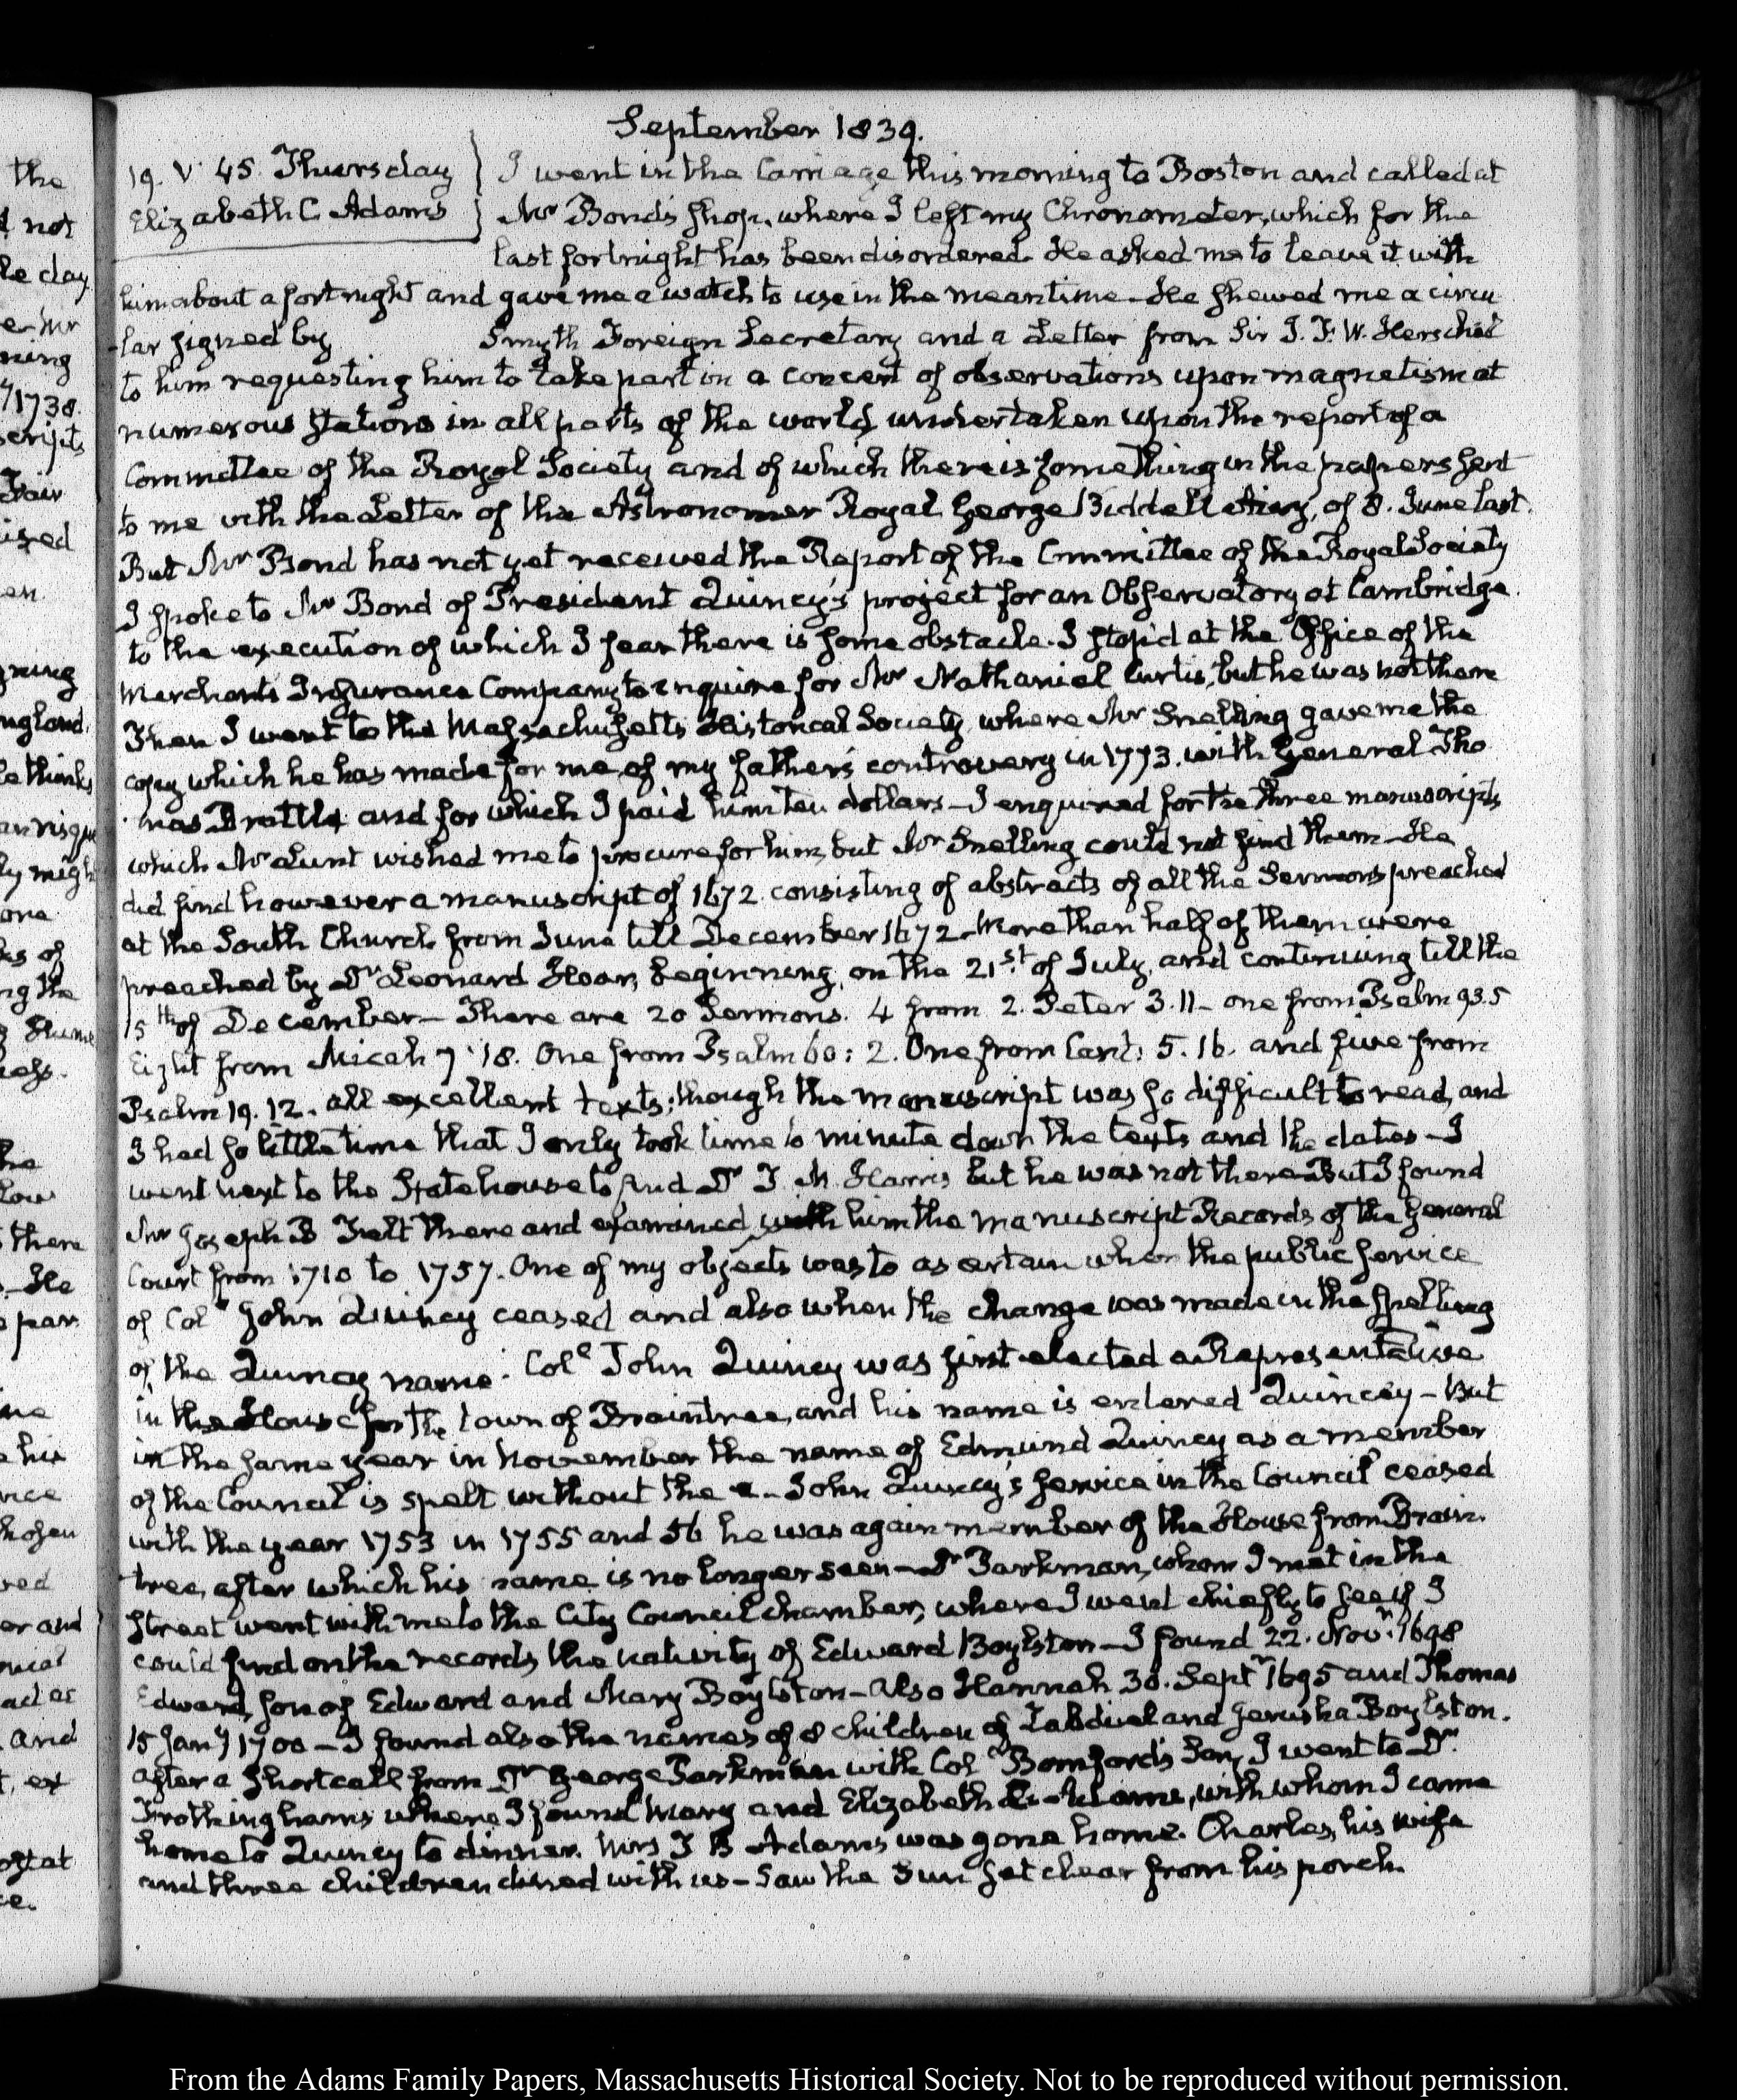 September 1839.
19. V. 45. Thursday
Elizabeth C. Adams
I went in the Carriage this morning to Boston and called at
Mr Bond's shop, where I left my Chronometer, which for the
last fortnight has been disordered. He asked me to leave it with
him about a fortnight and gave me a watch to use in the meantime - He shewed me a circu
lar signed by Smyth Foreign Secretary and a Letter from Sir J. F. W. Herschel
to him requesting him to take part in a concert of observations upon magnetism at
numerous stations in all parts of the world, undertaken upon the report of a
Committee of the Royal Society and of which there is something in the papers sent
to me with the Letter of the Astronomer Royal George Biddell Airy, of 8. June last.
But Mr Bond has not yet received the Report of the Committee of the Royal Society
I spoke to Mr Bond of President Quincy's project for an Observatory at Cambridge.
to the execution of which I fear there is some obstacle. I stop'd at the Office of the
Merchants Insurance Company to enquire for Mr Nathaniel Curtis, but he was not there
Then I went to the Massachusetts Historical Society, where Mr Snelling gave me the
copy which he has made for me, of my father's controversy in 1773. with General Tho
mas Brattle and for which I paid him ten dollars - I enquired for the three manuscripts
which Mr Lunt wished me to procure for him, but Mr Snelling could not find them - He
did find however a manuscript of 1672. consisting of abstracts of all the Sermons preached
at the South Church from June till December 1672 - More than half of them were
preached by Dr Leonard Hoar, beginning, on the 21st of July, and continuing till the
15th of December - There are 20 Sermons. 4 from 2. Peter 3.11 - one from Psalm 93.5
Eight from Micah 7.18. One from Psalm 60:2. One from Cant: 5.16. and five from
Psalm 19.12. all excellent texts; though the manuscript was so difficult to read, and
I had so little time that I only took time to minute down the texts and the dates - I
went next to the Statehouse to find Dr T. M. Harris but he was not there - But I found
Mr Joseph B Felt there and examined with him the manuscript Records of the General
Court from 1710 to 1757. One of my objects was to ascertain when the public service
of Coll John Quincy ceased and also when the change was made in the spelling
of the Quincy name. Coll John Quincy was first elected a Representative
in the House for the town of Braintree, and his name is entered Quincey - But
in the same year in November the name of Edmund Quincy as a member
of the Council is spelt without the e - John Quincy's service in the Council ceased
with the year 1753 in 1755 and 56 he was again member of the House from Brain
tree, after which his name is no longer seen - Dr Parkman, whom I met in the
street went with me to the City Council chamber, where I went chiefly to see if I
could find on the records, the nativity of Edward Boylston - I found 22. Novr. 1698
Edward, son of Edward and Mary Boylston - also Hannah 30. Septr 1695 and Thomas
15 Jany 1700 - I found also the names of 8 children of Zabdiel and Jerusha Boylston.
after a short call from Dr George Parkman with Coll Bomford's Son, I went to Dr.
Frothingham's where I found Mary and Elizabeth C. Adams, with whom I came
home to Quincy to dinner. Mrs T B Adams was gone home. Charles, his wife
and three children dined with us - Saw the Sun set clear from his porch.
From the Adams Family Papers, Massachusetts Historical Society. Not to be reproduced without permission.